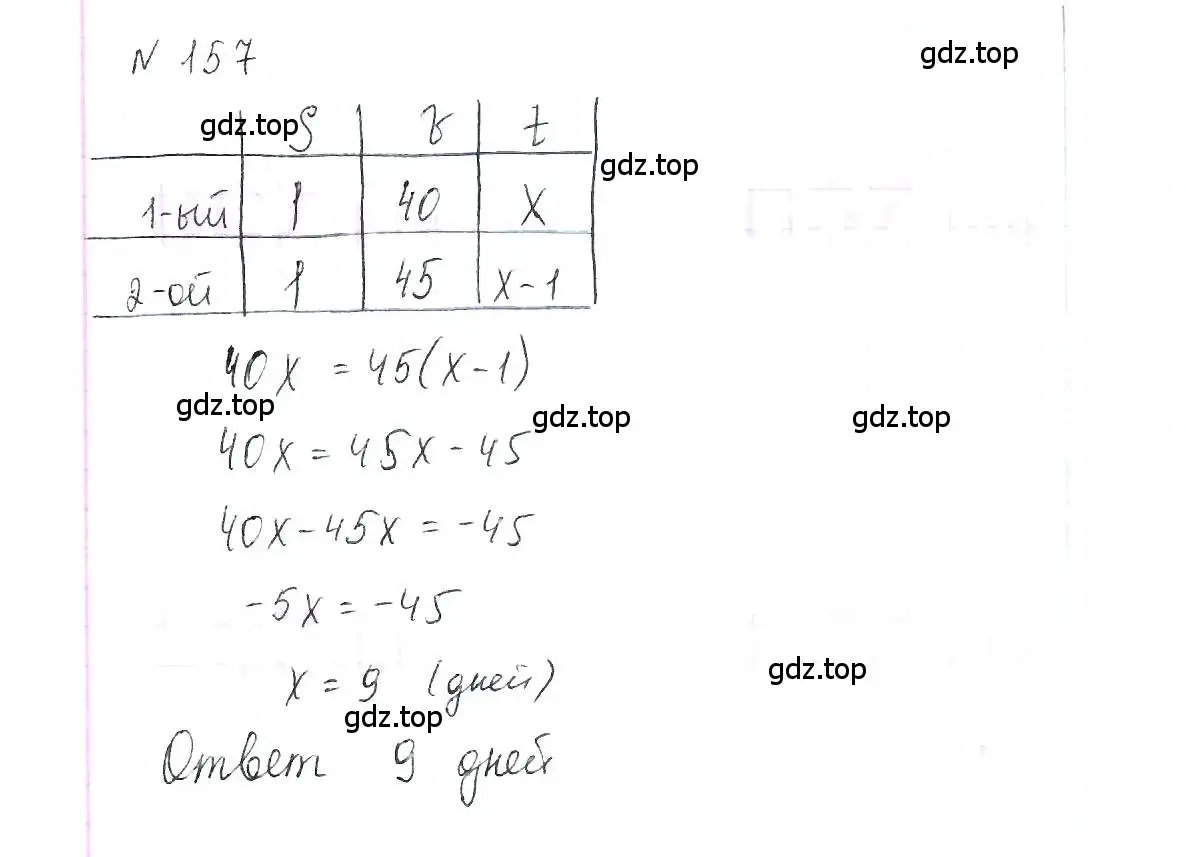 N 157
gdz.top
gdz.top S v t
gdz.top
1-ый 1 40 x
2-ой 1 45 x-1
40x = 45(x-1)
gdz.top gdz.top gdz.top
40x = 45x - 45
40x - 45x = -45
-5x = -45
gdz.top
x = 9 (дней)
gdz.top
Ответ 9 дней